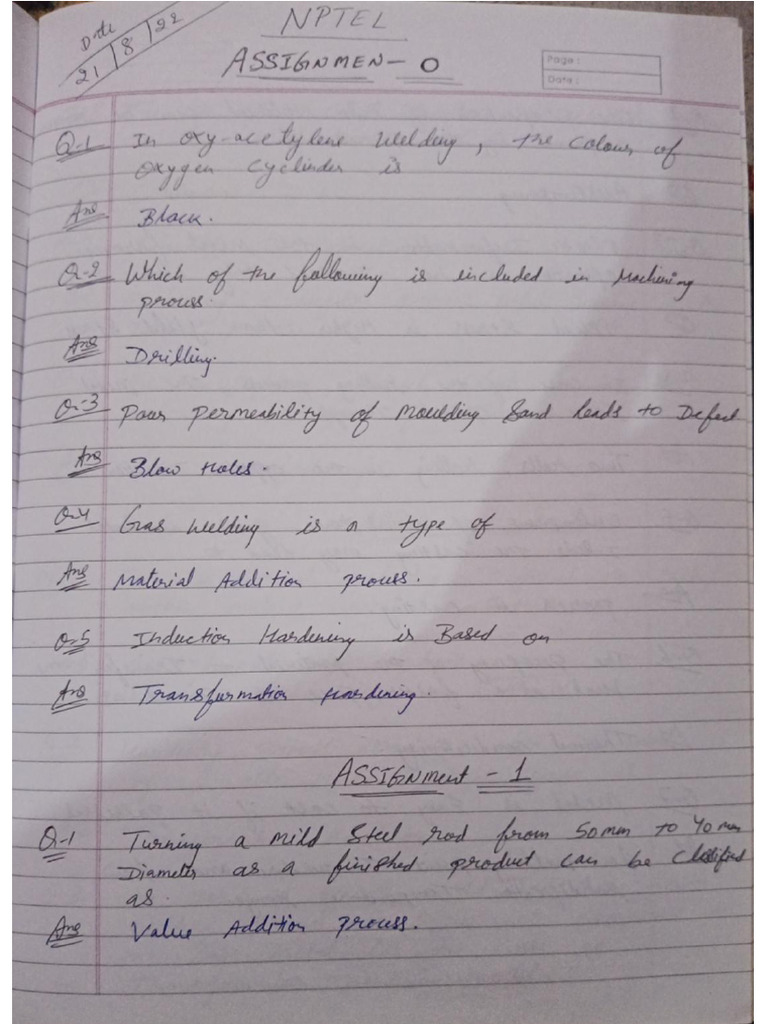 Date 21/8/22
NPTEL
ASSIGNMEN- 0
Page :
Date :
Q-1 In oxy-acetylene welding, the colour of
oxygen cyclinder is
Ans Black.
Q-2 Which of the following is included in Machining
process.
Ans Drilling.
Q-3 Poor permeability of moulding sand leads to Defect
Ans Blow Holes.
Q-4 Gas welding is a type of
Ans Material Addition process.
Q-5 Induction Hardening is Based on
Ans Transformation Hardening.
ASSIGNment - 1
Q-1 Turning a mild steel rod from 50mm to 40mm
Diameter as a finished product can be
as.
Ans Value Addition process.